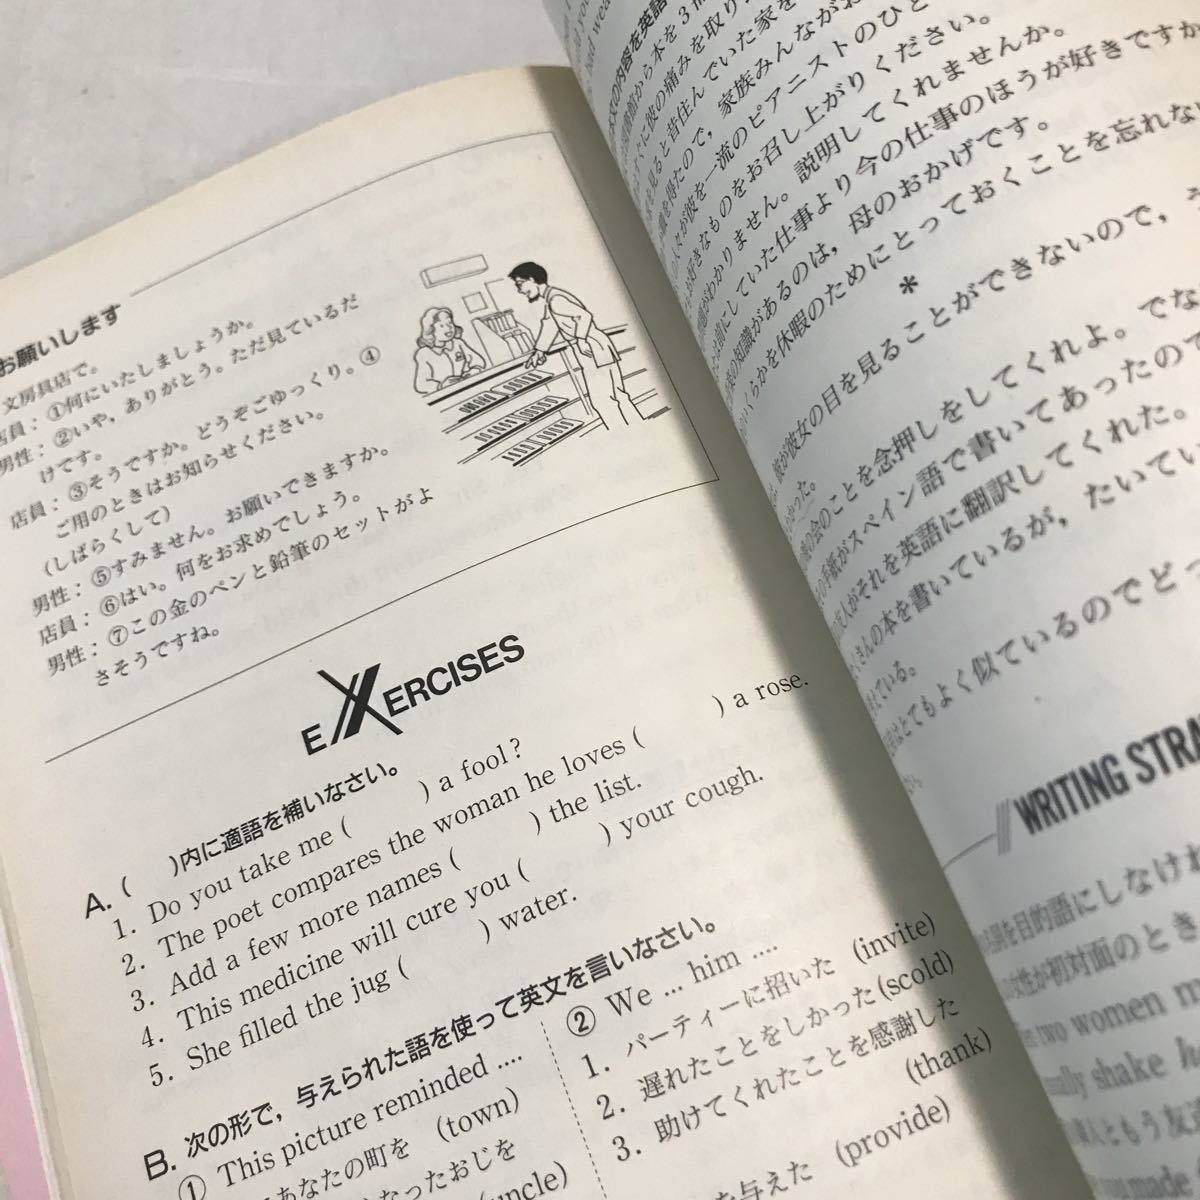 お願いします
文房具店で。
店員：①何にいたしましょうか。
男性：②いや，ありがとう。ただ見ているだ
けです。
店員：③そうですか。どうぞごゆっくり。④
ご用のときはお知らせください。
(しばらくして)
男性：⑤すみません。お願いできますか。
店員：⑥はい。何をお求めでしょう。
男性：⑦この金のペンと鉛筆のセットがよ
さそうですね。
EXERCISES
A. (　　)内に適語を補いなさい。
1. Do you take me (　　) a fool?
2. The poet compares the woman he loves (　　) a rose.
3. Add a few more names (　　) the list.
4. This medicine will cure you (　　) your cough.
5. She filled the jug (　　) water.
B. 次の形で，与えられた語を使って英文を言いなさい。
① This picture reminded ....
あなたの町を (town)
なったおじを
(uncle)
② We ... him ....
1. パーティーに招いた (invite)
2. 遅れたことをしかった (scold)
3. 助けてくれたことを感謝した
(thank)
を与えた (provide)
文の内容を英語
館から本を3
ぐに彼の痛みを取り
を見ると昔住んでいた家を
を得たので，家族みんながお
人々が彼を一流のピアニストのひと
好きなものをお召し上がりください。
がわかりません。説明してくれませんか。
は前にしていた仕事より今の仕事のほうが好きですか
の知識があるのは，母のおかげです。
いくらかを休暇のためにとっておくことを忘れない
*
彼が彼女の目を見ることができないので，そ
かった。
の会のことを念押しをしてくれよ。でな
の手紙がスペイン語で書いてあったので
友人がそれを英語に翻訳してくれた。
くさんの本を書いているが，たいてい
ている。
はとてもよく似ているのでどっ
WRITING STRA
詞を目的語にしなけれ
の女性が初対面のとき
two women m
ually shake h
人ともう友達
made